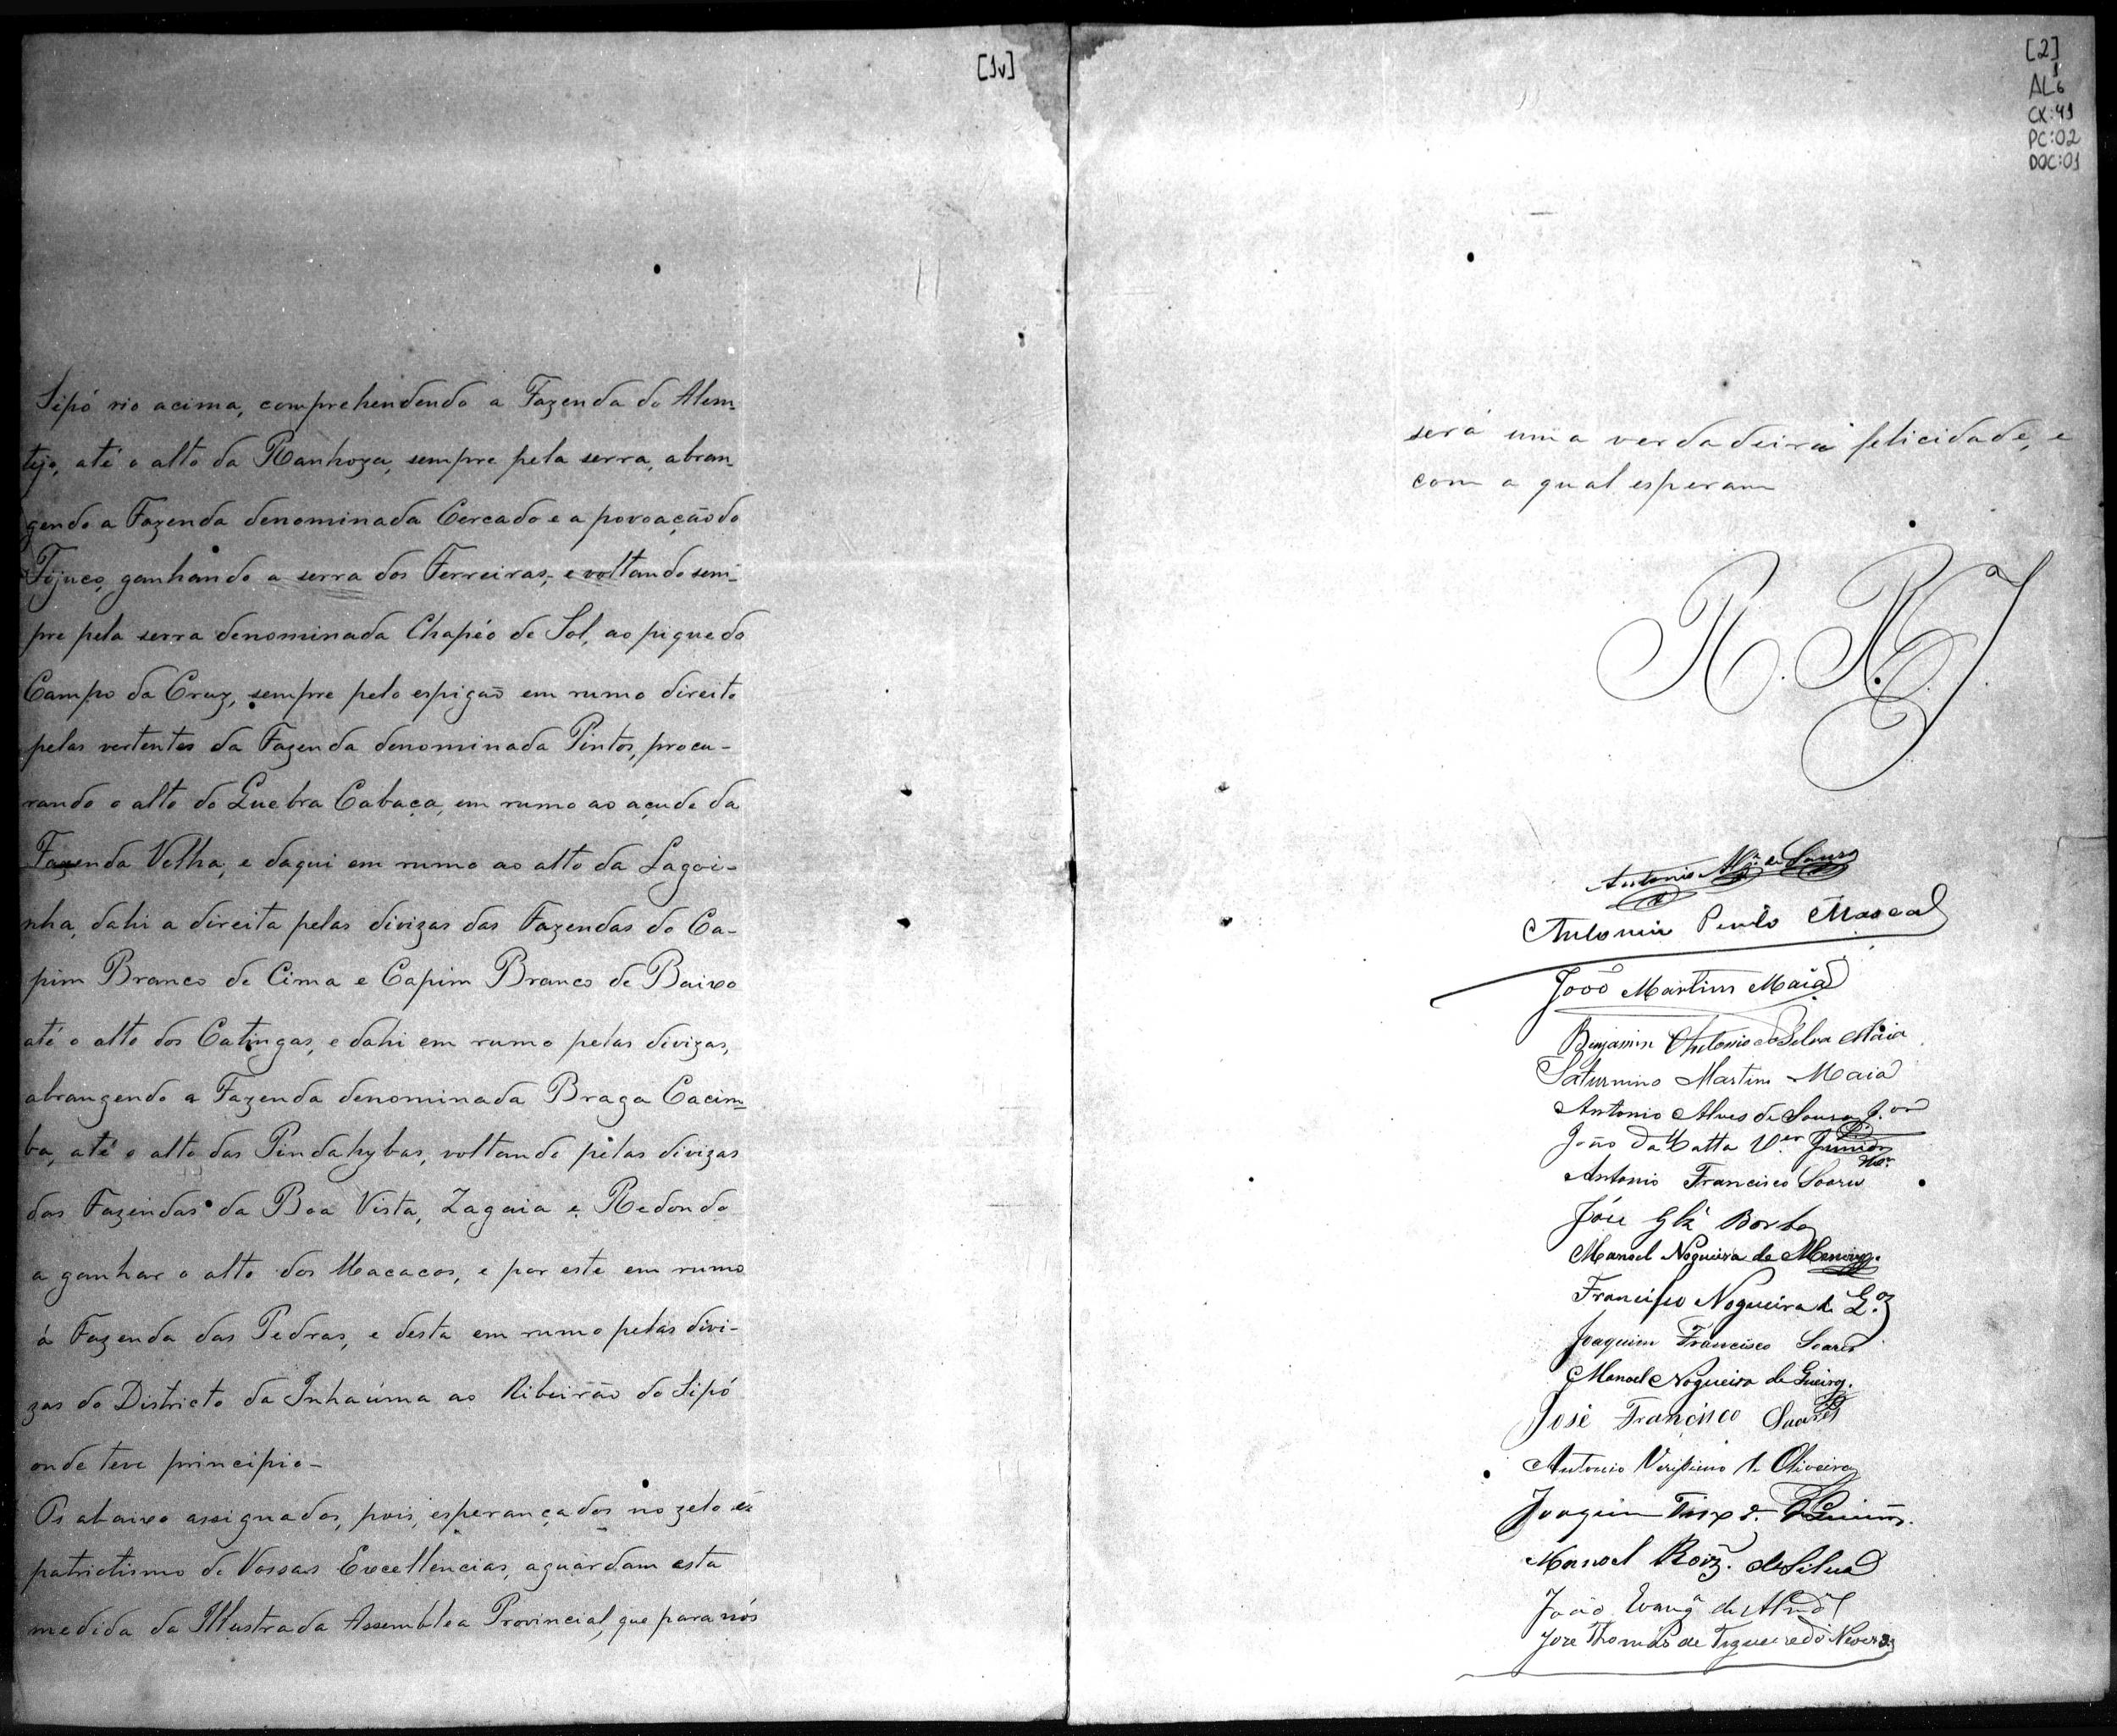 [1v]
Sipó rio acima, comprehendendo a Fazenda do Alem-
tejo, até o alto da Ranhoza, sempre pela serra, abran-
gendo a Fazenda denominada Cercado e a povoação do
Tijuco, ganhando a serra dos Ferreiras, e voltando sem-
pre pela serra denominada Chapéo de Sol, ao pique do
Campo da Cruz, sempre pelo espigão em rumo direito
pelas vertentes da Fazenda denominada Pintos, procu-
rando o alto do Quebra Cabaça, em rumo ao açude da
Fazenda Velha, e daqui em rumo ao alto da Lagoi-
nha, dahi a direita pelas divizas das Fazendas do Ca-
pim Branco de Cima e Capim Branco de Baixo
até o alto dos Catingas, e dahi em rumo pelas divizas,
abrangendo a Fazenda denominada Braga Cacim-
ba, até o alto das Pindahybas, voltando pelas divizas
das Fazendas da Boa Vista, Zagaia e Redondo
a ganhar o alto dos Macacos, e por este em rumo
á Fazenda das Pedras, e desta em rumo pelas divi-
zas do Districto da Inhaúma ao Ribeirão do Sipó
onde teve principio-
Os abaixo assignados, pois, esperançados no zelo e
patriotismo de Vossas Excellencias, aguardam esta
medida da Illustrada Assemblea Provincial, que para nós
[2]
AL6
CX:41
PC:02
DOC:01
será uma verdadeira felicidade, e
com a qual esperam
R. R.
Antonio de Souza
Antonio Mascal
João Martins Maia
Benjamin Antonio da Silva Maia
Saturnino Martins Maia
Antonio Alves de Souza J.or
João da Matta V.er Junior
Antonio Francisco Soares
Borba
Manoel Nogueira de Menezes
Francisco Nogueira de
Joaquim Francisco Soares
Manoel Nogueira de
José Francisco Soares
Antonio Verissimo de Oliveira
Joaquim
Manoel Roiz. da Silva
João Evang.ª de
Joze Thomás de Figueiredo Neves